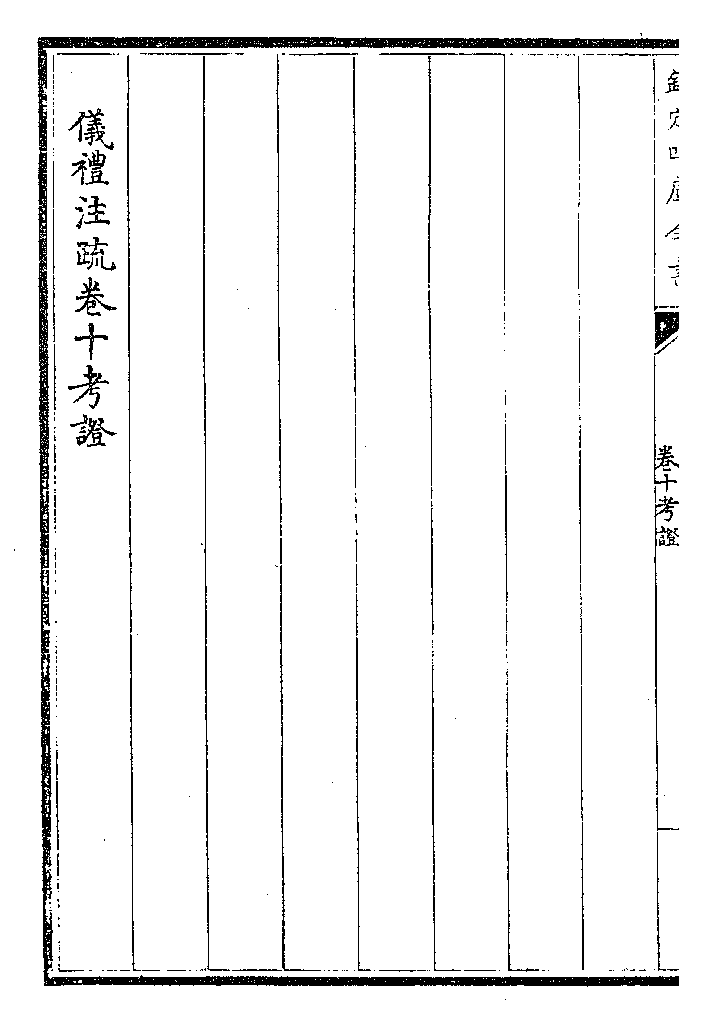 欽定四庫全書
卷十考證
儀禮注疏卷十考證